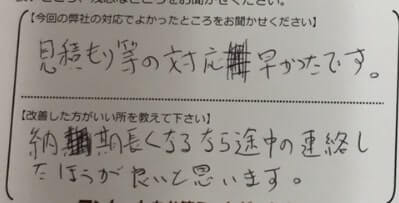 【今回の弊社の対応でよかったところをお聞かせください】
見積もり等の対応早かったです。
【改善した方がいい所を教えて下さい】
納期長くなるなら途中の連絡し
たほうが良いと思います。